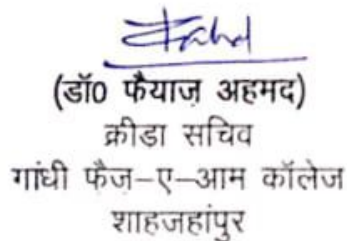 (डॉ0 फैयाज़ अहमद)
क्रीडा सचिव
गांधी फैज़–ए–आम कॉलेज
शाहजहांपुर